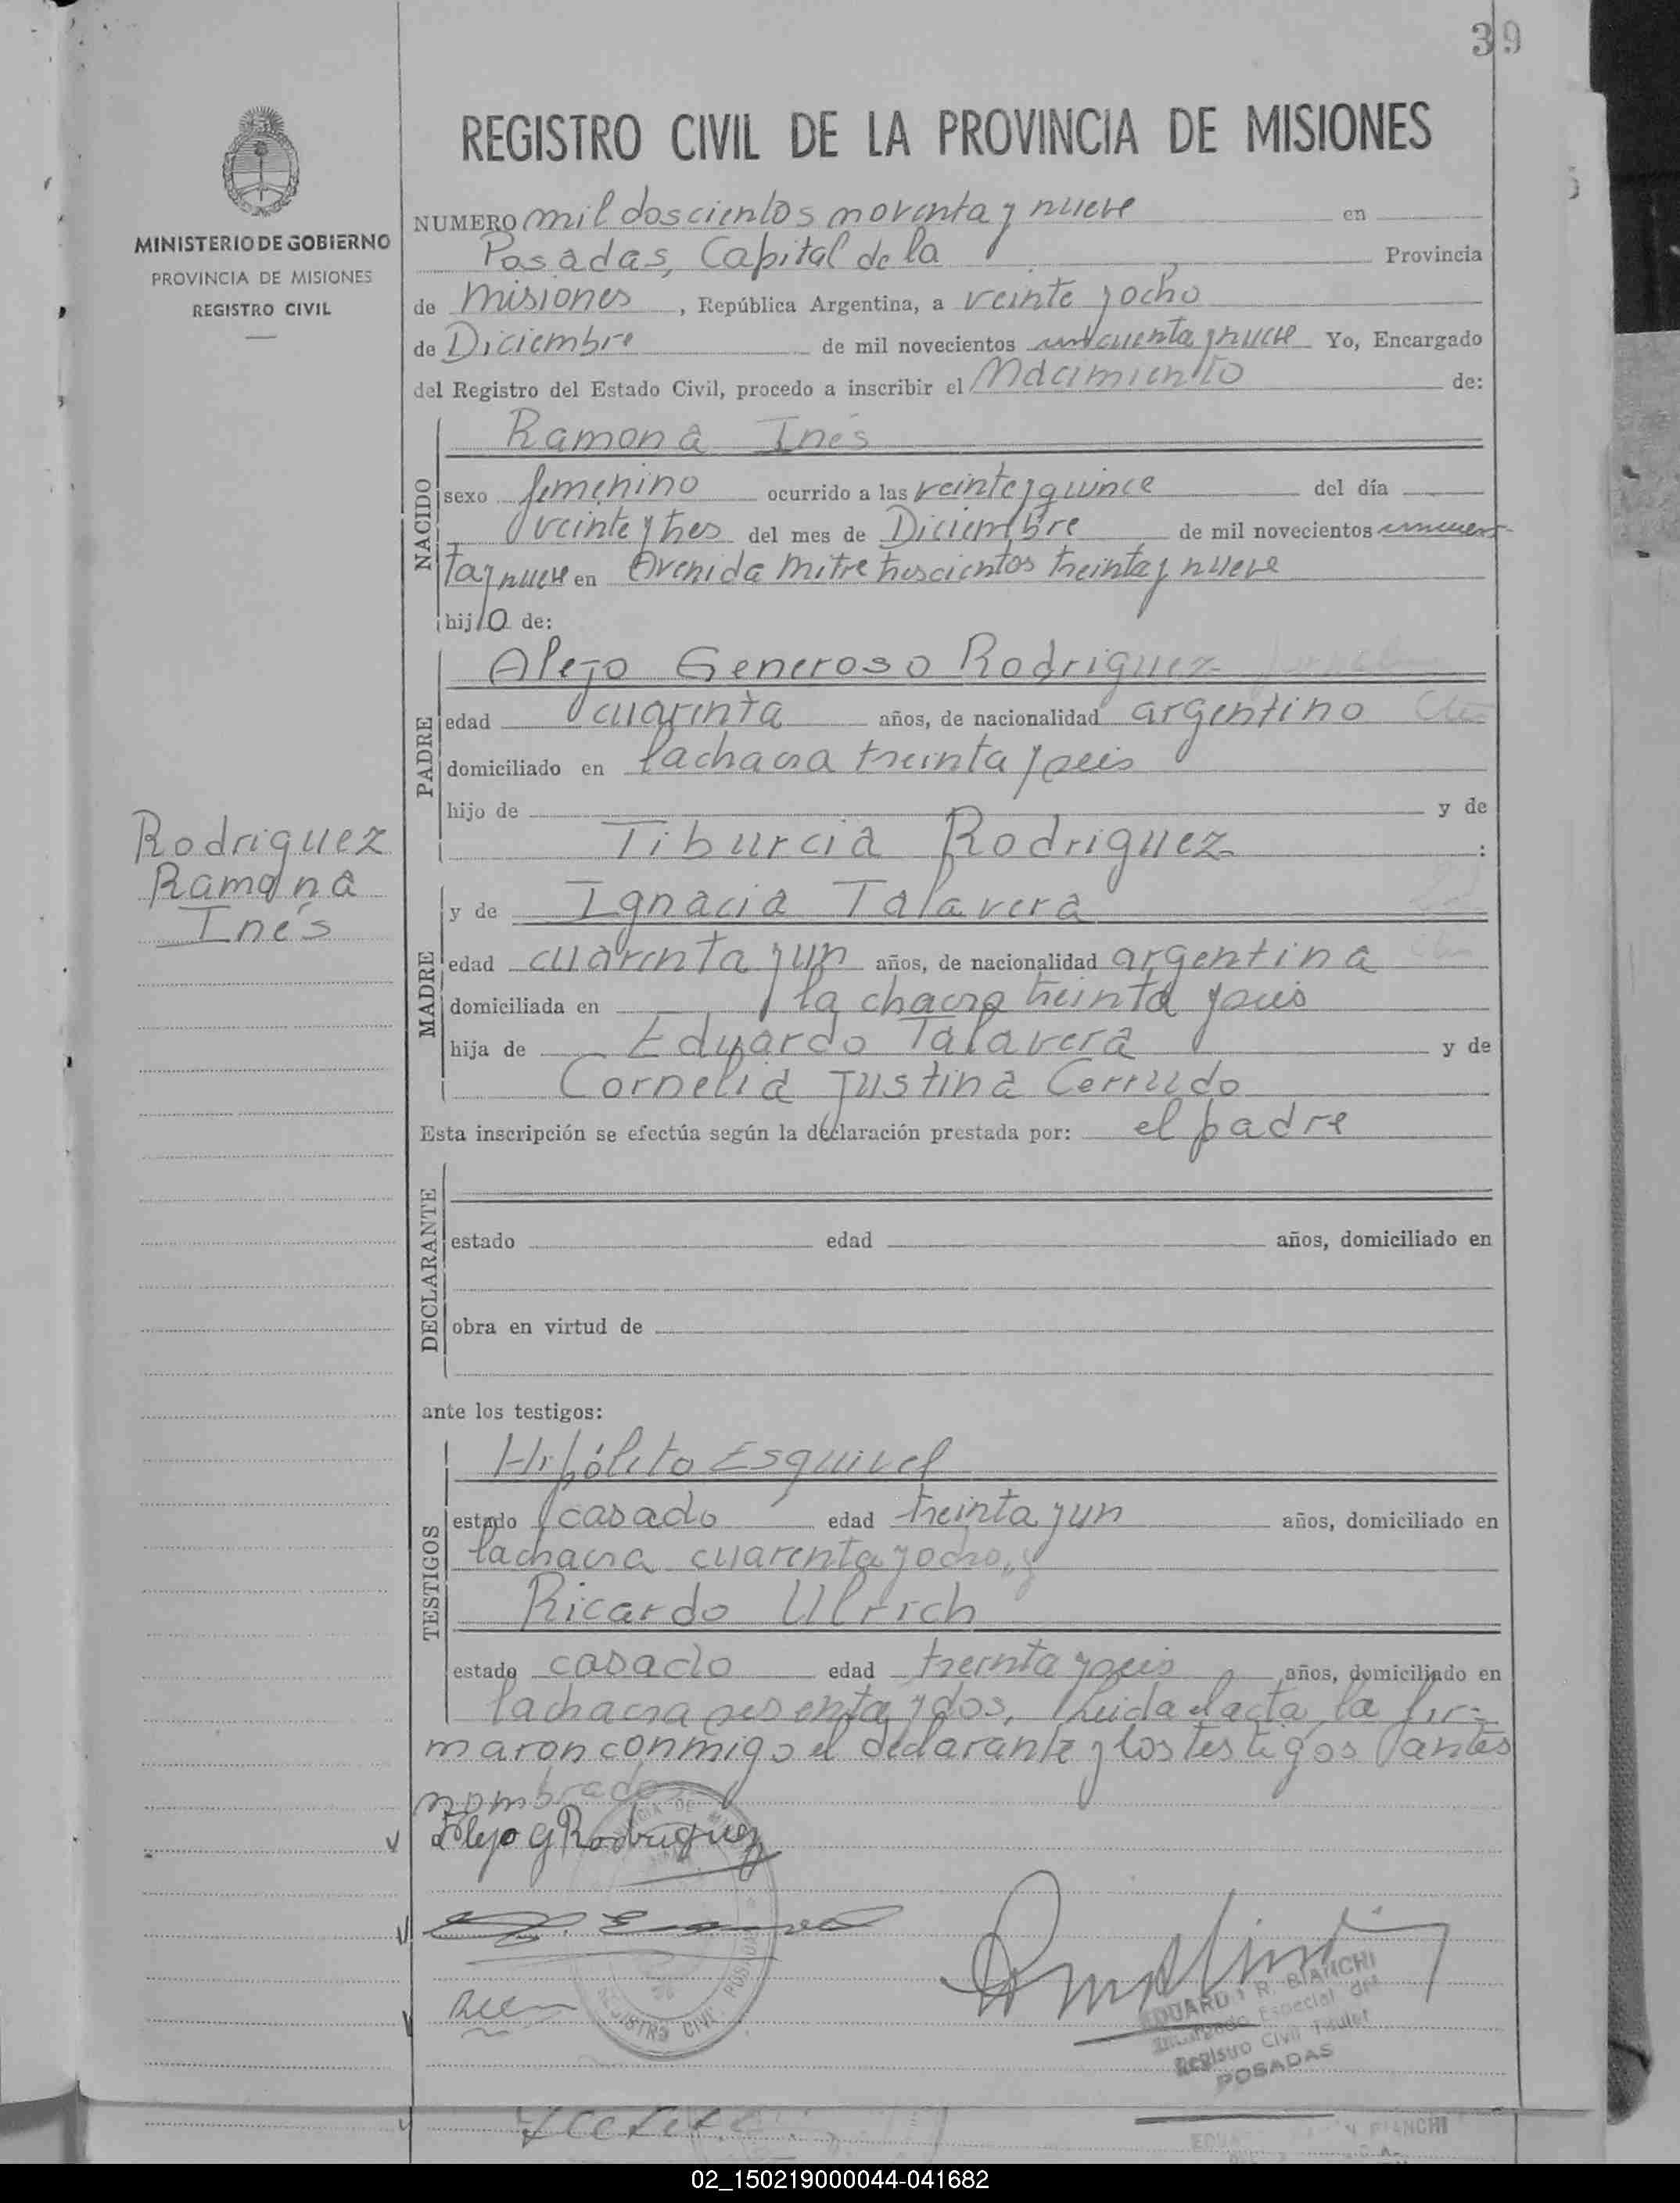 39
REGISTRO CIVIL DE LA PROVINCIA DE MISIONES
MINISTERIO DE GOBIERNO
PROVINCIA DE MISIONES
REGISTRO CIVIL
NUMERO mil doscientos noventa y nueve en
Posadas, Capital de la Provincia
de Misiones, República Argentina, a veinte y ocho
de Diciembre de mil novecientos cincuenta y nueve Yo, Encargado
del Registro del Estado Civil, procedo a inscribir el Nacimiento de:
NACIDO
Ramona Inés
sexo femenino ocurrido a las veinte y quince del día
veinte y tres del mes de Diciembre de mil novecientos cincuen
ta y nueve en Avenida Mitre trescientos treinta y nueve
hija de:
PADRE
Alejo Generoso Rodriguez
edad cuarenta años, de nacionalidad argentino
domiciliado en la chacra treinta y seis
hijo de y de
Tiburcia Rodriguez :
Rodriguez
Ramona
Inés
MADRE
y de Ignacia Talavera
edad cuarenta y un años, de nacionalidad argentina
domiciliada en la chacra treinta y seis
hija de Eduardo Talavera y de
Cornelia Justina Cerrudo
Esta inscripción se efectúa según la declaración prestada por: el padre
DECLARANTE
estado edad años, domiciliado en
obra en virtud de
ante los testigos:
TESTIGOS
Hipólito Esquivel
estado casado edad treinta y un años, domiciliado en
la chacra cuarenta y ocho, y
Ricardo Ulrich
estado casado edad treinta y seis años, domiciliado en
la chacra sesenta y dos, leida el acta la fir=
maron conmigo el declarante y los testigos antes
nombrado
Alejo G Rodriguez
REGISTRO CIVIL POSADAS
EDUARDO R. BIANCHI
Encargado Especial del
Registro Civil Titular
POSADAS
BIANCHI
02_150219000044-041682